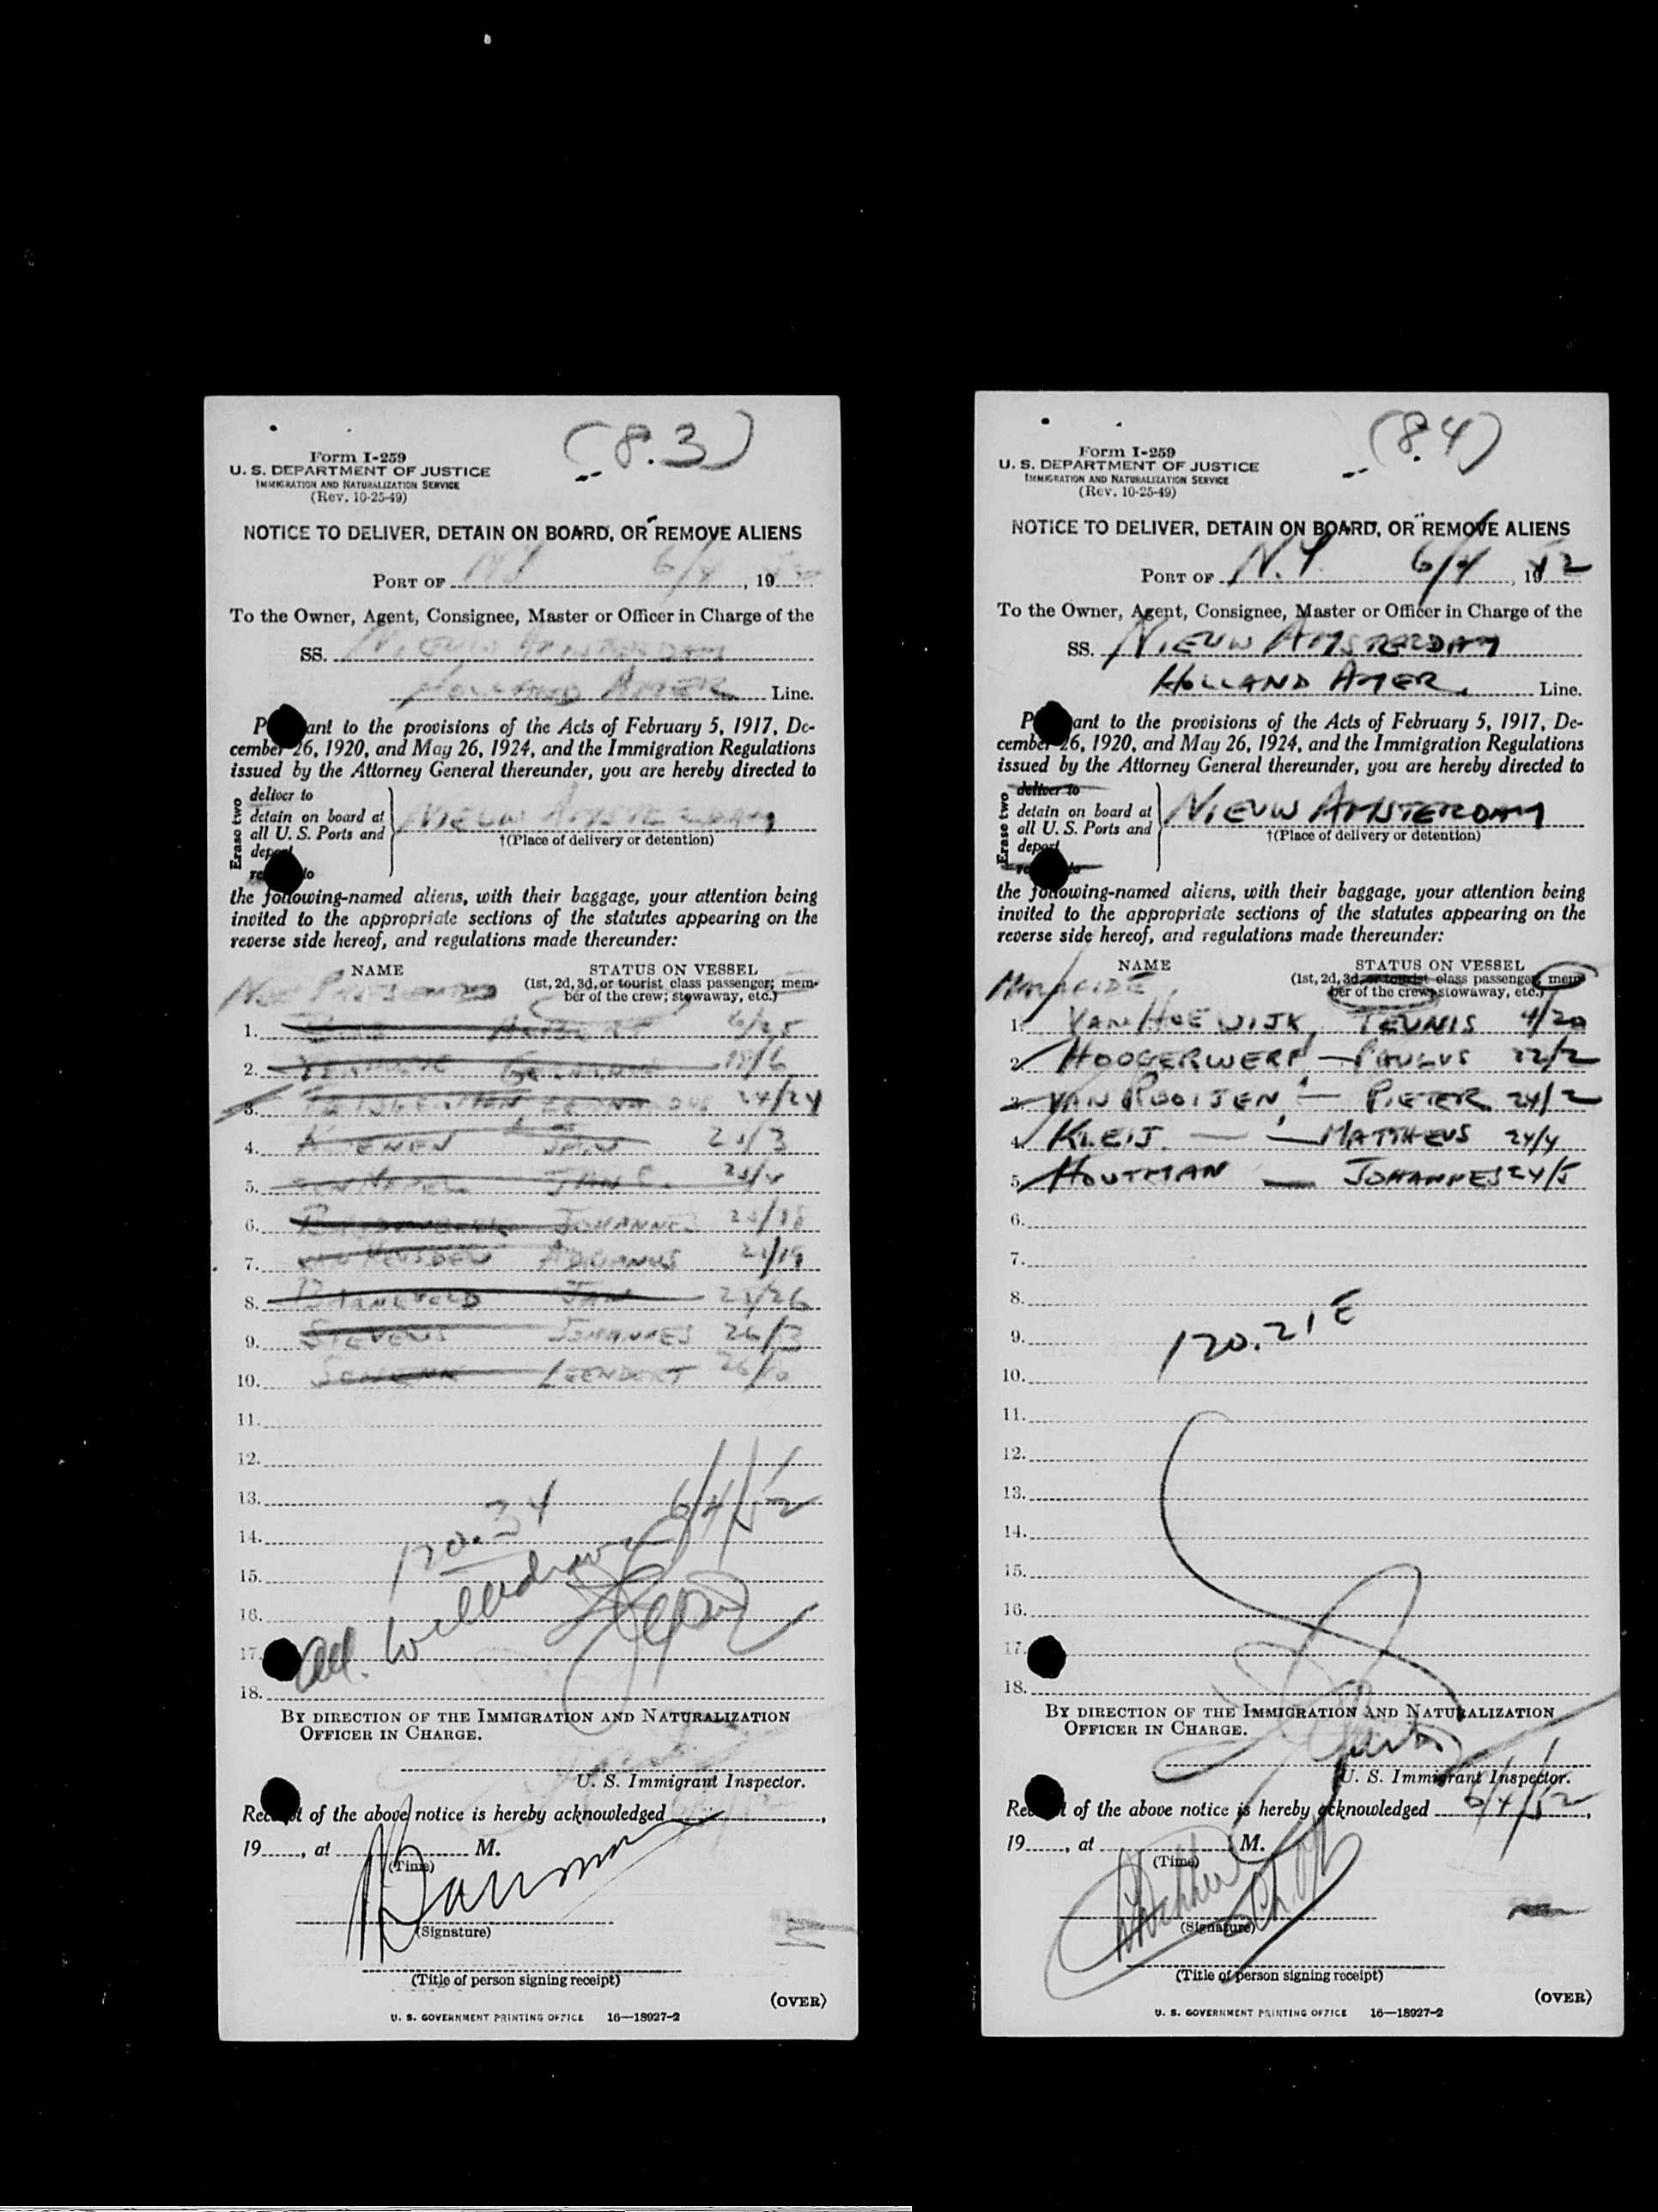 (8.3)
Form I-259
U. S. DEPARTMENT OF JUSTICE
IMMIGRATION AND NATURALIZATION SERVICE
(Rev. 10-25-49)
NOTICE TO DELIVER, DETAIN ON BOARD, OR REMOVE ALIENS
PORT OF N Y 6/4, 19 52
To the Owner, Agent, Consignee, Master or Officer in Charge of the
SS. NIEUW AMSTERDAM
HOLLAND AMER Line.
ant to the provisions of the Acts of February 5, 1917, De-
cember 26, 1920, and May 26, 1924, and the Immigration Regulations
issued by the Attorney General thereunder, you are hereby directed to
Erase two
deliver to
detain on board at
all U. S. Ports and
deport
to
NIEUW AMSTERDAM
†(Place of delivery or detention)
the following-named aliens, with their baggage, your attention being
invited to the appropriate sections of the statutes appearing on the
reverse side hereof, and regulations made thereunder:
NAME STATUS ON VESSEL
(1st, 2d, 3d, or tourist class passenger; mem-
ber of the crew; stowaway, etc.)
NOT PRESENTED
1. 6/25
2.
3. 24/24
4. KOENEN JAN 25/3
5. JAN 25/4
6. JOHANNES 25/18
7. ADRIANUS 25/19
8. BARNEVELD JAN 25/26
9. STEVENS JOHANNES 26/3
10. LEENDERT 26/10
11.
12.
13.
14. 120.34 6/4/52
15.
16.
17. all withdrawn
18.
BY DIRECTION OF THE IMMIGRATION AND NATURALIZATION
OFFICER IN CHARGE.
U. S. Immigrant Inspector.
of the above notice is hereby acknowledged
19, at M.
(Time)
(Signature)
(Title of person signing receipt)
(OVER)
U. S. GOVERNMENT PRINTING OFFICE 16—18927-2
(8.4)
Form I-259
U. S. DEPARTMENT OF JUSTICE
IMMIGRATION AND NATURALIZATION SERVICE
(Rev. 10-25-49)
NOTICE TO DELIVER, DETAIN ON BOARD, OR REMOVE ALIENS
PORT OF N.Y. 6/4, 19 52
To the Owner, Agent, Consignee, Master or Officer in Charge of the
SS. NIEUW AMSTERDAM
HOLLAND AMER. Line.
ant to the provisions of the Acts of February 5, 1917, De-
cember 26, 1920, and May 26, 1924, and the Immigration Regulations
issued by the Attorney General thereunder, you are hereby directed to
Erase two
deliver to
detain on board at
all U. S. Ports and
deport
NIEUW AMSTERDAM
†(Place of delivery or detention)
the following-named aliens, with their baggage, your attention being
invited to the appropriate sections of the statutes appearing on the
reverse side hereof, and regulations made thereunder:
NAME STATUS ON VESSEL
(1st, 2d, 3d, or tourist class passenger; mem-
ber of the crew; stowaway, etc.)
MALAFIDE
1. VAN HOEWIJK, TEUNIS 4/20
2. HOOGERWERF — PAULUS 22/2
3. VAN ROOIJEN, — PIETER 24/2
4. KLEIJ. — MATTHEUS 24/4
5. HOUTMAN — JOHANNES 24/5
6.
7.
8.
9. 120.21E
10.
11.
12.
13.
14.
15.
16.
17.
18.
BY DIRECTION OF THE IMMIGRATION AND NATURALIZATION
OFFICER IN CHARGE.
U. S. Immigrant Inspector.
of the above notice is hereby acknowledged 6/4/52,
19, at M.
(Time)
(Signature)
(Title of person signing receipt)
(OVER)
U. S. GOVERNMENT PRINTING OFFICE 16—18927-2